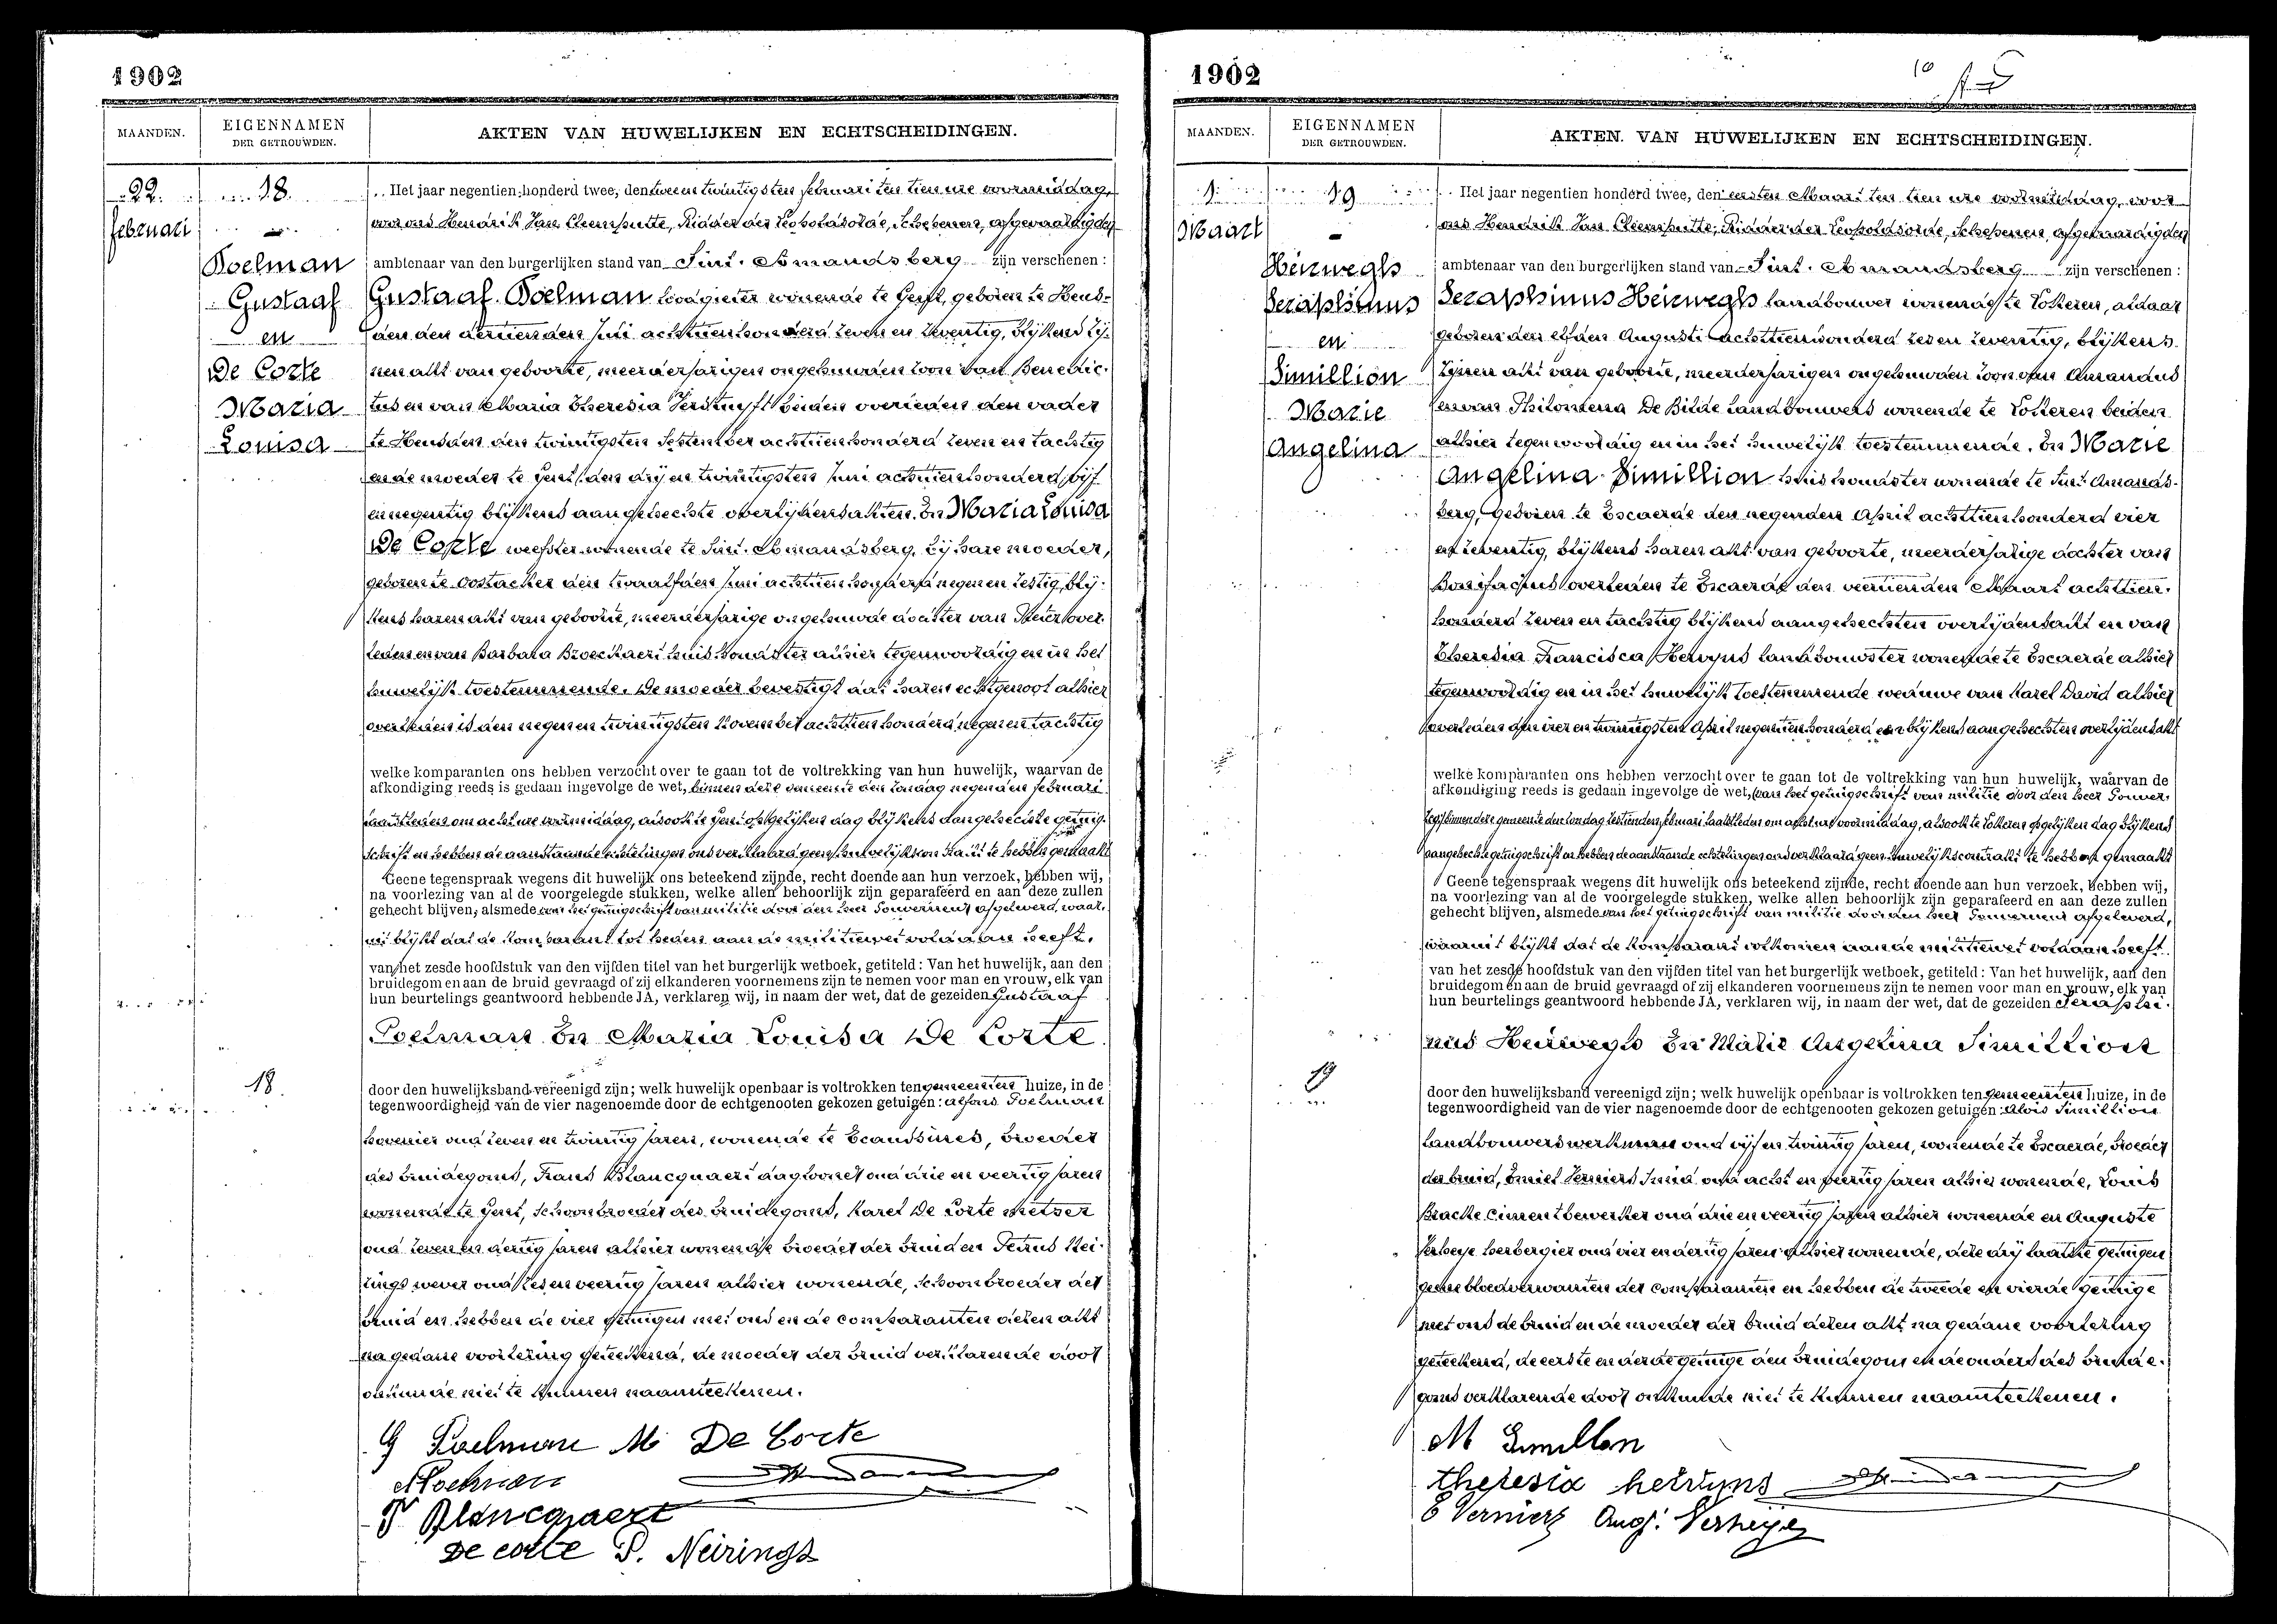 1902
MAANDEN.
EIGENNAMEN
DER GETROUWDEN.
AKTEN VAN HUWELIJKEN EN ECHTSCHEIDINGEN.
22.
februari
18.
Poelman
Gustaaf
en
De Corte
Maria
Louisa
Het jaar negentien honderd twee, den tweeentwintigsten februari ten tien ure voormiddag,
voor ons Hendrik Jan Cleemputte, Ridder der Leopoldsorde, Schepenen, afgevaardigden
ambtenaar van den burgerlijken stand van Sint. Amandsberg zijn verschenen:
Gustaaf Poelman loodgieter wonende te Gent, geboren te Heus-
den den dertienden Juni achttienhonderd zeven en zeventig, blijkens zij-
nen akt van geboorte, meerderjarigen ongehuwden zoon van Benedic-
tus en van Maria Theresia beiden overleden den vader
te Heusden den twintigsten September achttienhonderd zeven en tachtig
en de moeder te Gent den drij en twintigsten Juni achttienhonderd vijf
en negentig blijkens aangehechte overlijdensakten. En Maria Louisa
De Corte weefster wonende te Sint. Amandsberg, bij hare moeder,
geboren te Oostacker den twaalfden Juni achttien honderd negen en zestig, blij-
kens haren akt van geboorte, meerderjarige ongehuwde dochter van Pieter over-
leden en van Barbara Broeckaert huishoudster alhier tegenwoordig en in het
huwelijk toestemmende. De moeder bevestigt dat haren echtgenoot alhier
overleden is den negen en twintigsten November achttien honderd negen en tachtig
welke komparanten ons hebben verzocht over te gaan tot de voltrekking van hun huwelijk, waarvan de
afkondiging reeds is gedaan ingevolge de wet, binnen deze gemeente den zondag negenden februari
laatstleden om acht ure voormiddag, alsook te Gent op gelijken dag blijkens aangehechte getuig-
schrift en hebben de aanstaande echtelingen ons verklaard geen huwelijkskontrakt te hebben gemaakt
Geene tegenspraak wegens dit huwelijk ons beteekend zijnde, recht doende aan hun verzoek, hebben wij,
na voorlezing van al de voorgelegde stukken, welke allen behoorlijk zijn geparafeerd en aan deze zullen
gehecht blijven, alsmede van het getuigschrift van militie door den heer Gouverneur afgeleverd, waar-
uit blijkt dat de komparant tot heden aan de militiewet voldaan heeft.
van het zesde hoofdstuk van den vijfden titel van het burgerlijk wetboek, getiteld: Van het huwelijk, aan den
bruidegom en aan de bruid gevraagd of zij elkanderen voornemens zijn te nemen voor man en vrouw, elk van
hun beurtelings geantwoord hebbende JA, verklaren wij, in naam der wet, dat de gezeiden Gustaaf
Poelman En Maria Louisa De Corte
18.
door den huwelijksband vereenigd zijn; welk huwelijk openbaar is voltrokken ten gemeenten huize, in de
tegenwoordigheid van de vier nagenoemde door de echtgenooten gekozen getuigen: Alfons Poelman
hovenier oud zeven en twintig jaren, wonende te Ecaussines, broeder
des bruidegoms, Frans Blancquaert dagloner oud drie en veertig jaren
wonende te Gent, schoonbroeder des bruidegoms, Karel De Corte metser
oud zeven en dertig jaren alhier wonende broeder der bruid en Petrus Nei-
rings wever oud zes en veertig jaren alhier wonende, schoonbroeder der
bruid en hebben de vier getuigen met ons en de comparanten dezen akt
na gedane voorlezing geteekend, de moeder der bruid verklarende door
onkunde niet te kunnen naamteekenen.
G Poelman M De Corte
A Poelman
F Blancquaert
De corte P. Neirings
1902
10
MAANDEN.
EIGENNAMEN
DER GETROUWDEN.
AKTEN VAN HUWELIJKEN EN ECHTSCHEIDINGEN.
1.
Maart
19
Heirwegh
Seraphinus
en
Simillion
Marie
Angelina
Het jaar negentien honderd twee, den eersten Maart ten tien ure voormiddag, voor
ons Hendrik Jan Cleemputte, Ridder der Leopoldsorde, Schepenen, afgevaardigden
ambtenaar van den burgerlijken stand van Sint. Amandsberg zijn verschenen:
Seraphinus Heirwegh landbouwer wonende te Lokeren, aldaar
geboren den elfden Augusti achttienhonderd zes en zeventig, blijkens
zijnen akt van geboorte, meerderjarigen ongehuwden zoon van Amandus
en van Philomena De Bilde landbouwers wonende te Lokeren beiden
alhier tegenwoordig en in het huwelijk toestemmende. En Marie
Angelina Simillion huishoudster wonende te Sint Amands-
berg, geboren te Escaerde den negenden April achttienhonderd vier
en zeventig, blijkens haren akt van geboorte, meerderjarige dochter van
Bonifacius overleden te Escaerde den veertienden Maart achttien-
honderd zeven en tachtig blijkens aangehechten overlijdensakt en van
Theresia Francisca landbouwster wonende te Escaerde alhier
tegenwoordig en in het huwelijk toestemmende weduwe van Karel David alhier
overleden den vier en twintigsten April negentienhonderd een blijkens aangehechten overlijdensakt
welke komparanten ons hebben verzocht over te gaan tot de voltrekking van hun huwelijk, waarvan de
afkondiging reeds is gedaan ingevolge de wet, van het getuigschrift van militie door den heer Gouver-
binnen deze gemeente den zondag zestienden februari laatstleden om acht ure voormiddag, alsook te Lokeren op gelijken dag blijkens
aangehechte getuigschrift en hebben de aanstaande echtelingen ons verklaard geen huwelijkscontrakt te hebben gemaakt
Geene tegenspraak wegens dit huwelijk ons beteekend zijnde, recht doende aan hun verzoek, hebben wij,
na voorlezing van al de voorgelegde stukken, welke allen behoorlijk zijn geparafeerd en aan deze zullen
gehecht blijven, alsmede van het getuigschrift van militie door den heer Gouverneur afgeleverd,
waaruit blijkt dat de komparant volkomen aan de militiewet voldaan heeft.
van het zesde hoofdstuk van den vijfden titel van het burgerlijk wetboek, getiteld: Van het huwelijk, aan den
bruidegom en aan de bruid gevraagd of zij elkanderen voornemens zijn te nemen voor man en vrouw, elk van
hun beurtelings geantwoord hebbende JA, verklaren wij, in naam der wet, dat de gezeiden Seraphi-
nus Heirwegh En Marie Angelina Simillion
19
door den huwelijksband vereenigd zijn; welk huwelijk openbaar is voltrokken ten gemeenten huize, in de
tegenwoordigheid van de vier nagenoemde door de echtgenooten gekozen getuigen: Alois Simillion
landbouwerswerkman oud vijf en twintig jaren, wonende te Escaerde, broeder
der bruid, Emiel Verniers Smid oud acht en veertig jaren alhier wonende, Louis
Bracke cimentbewerker oud drie en veertig jaren alhier wonende en Auguste
Verheye herbergier oud vier en dertig jaren alhier wonende, deze drij laatste getuigen
geene bloedverwanten der comparanten en hebben de tweede en vierde getuige
met ons de bruid en de moeder der bruid dezen akt na gedane voorlezing
geteekend, de eerste en derde getuige den bruidegom en de ouders des bruide-
goms verklarende door onkunde niet te kunnen naamteekenen.
M Simillon
theresia
E Verniers Aug. Verheye